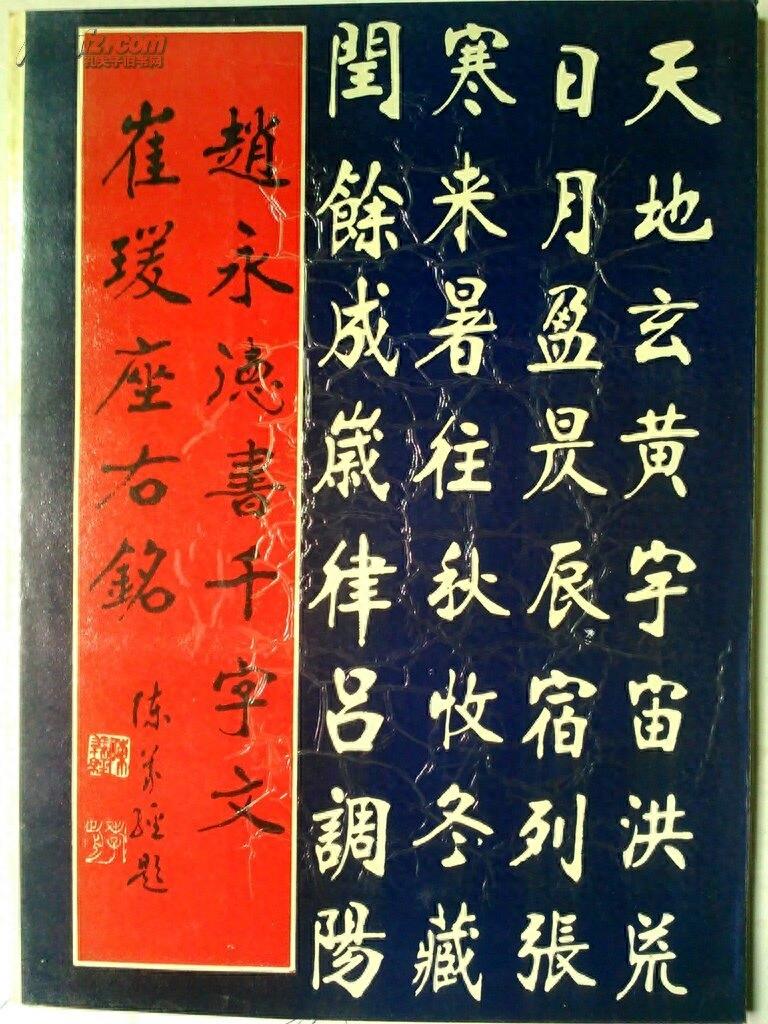 天地玄黄宇宙洪荒
日月盈昃辰宿列張
寒来暑往秋收冬藏
閏餘成嵗律吕調陽
趙永德書千字文
崔瑗座右銘
陳義經題
孔夫子旧书网